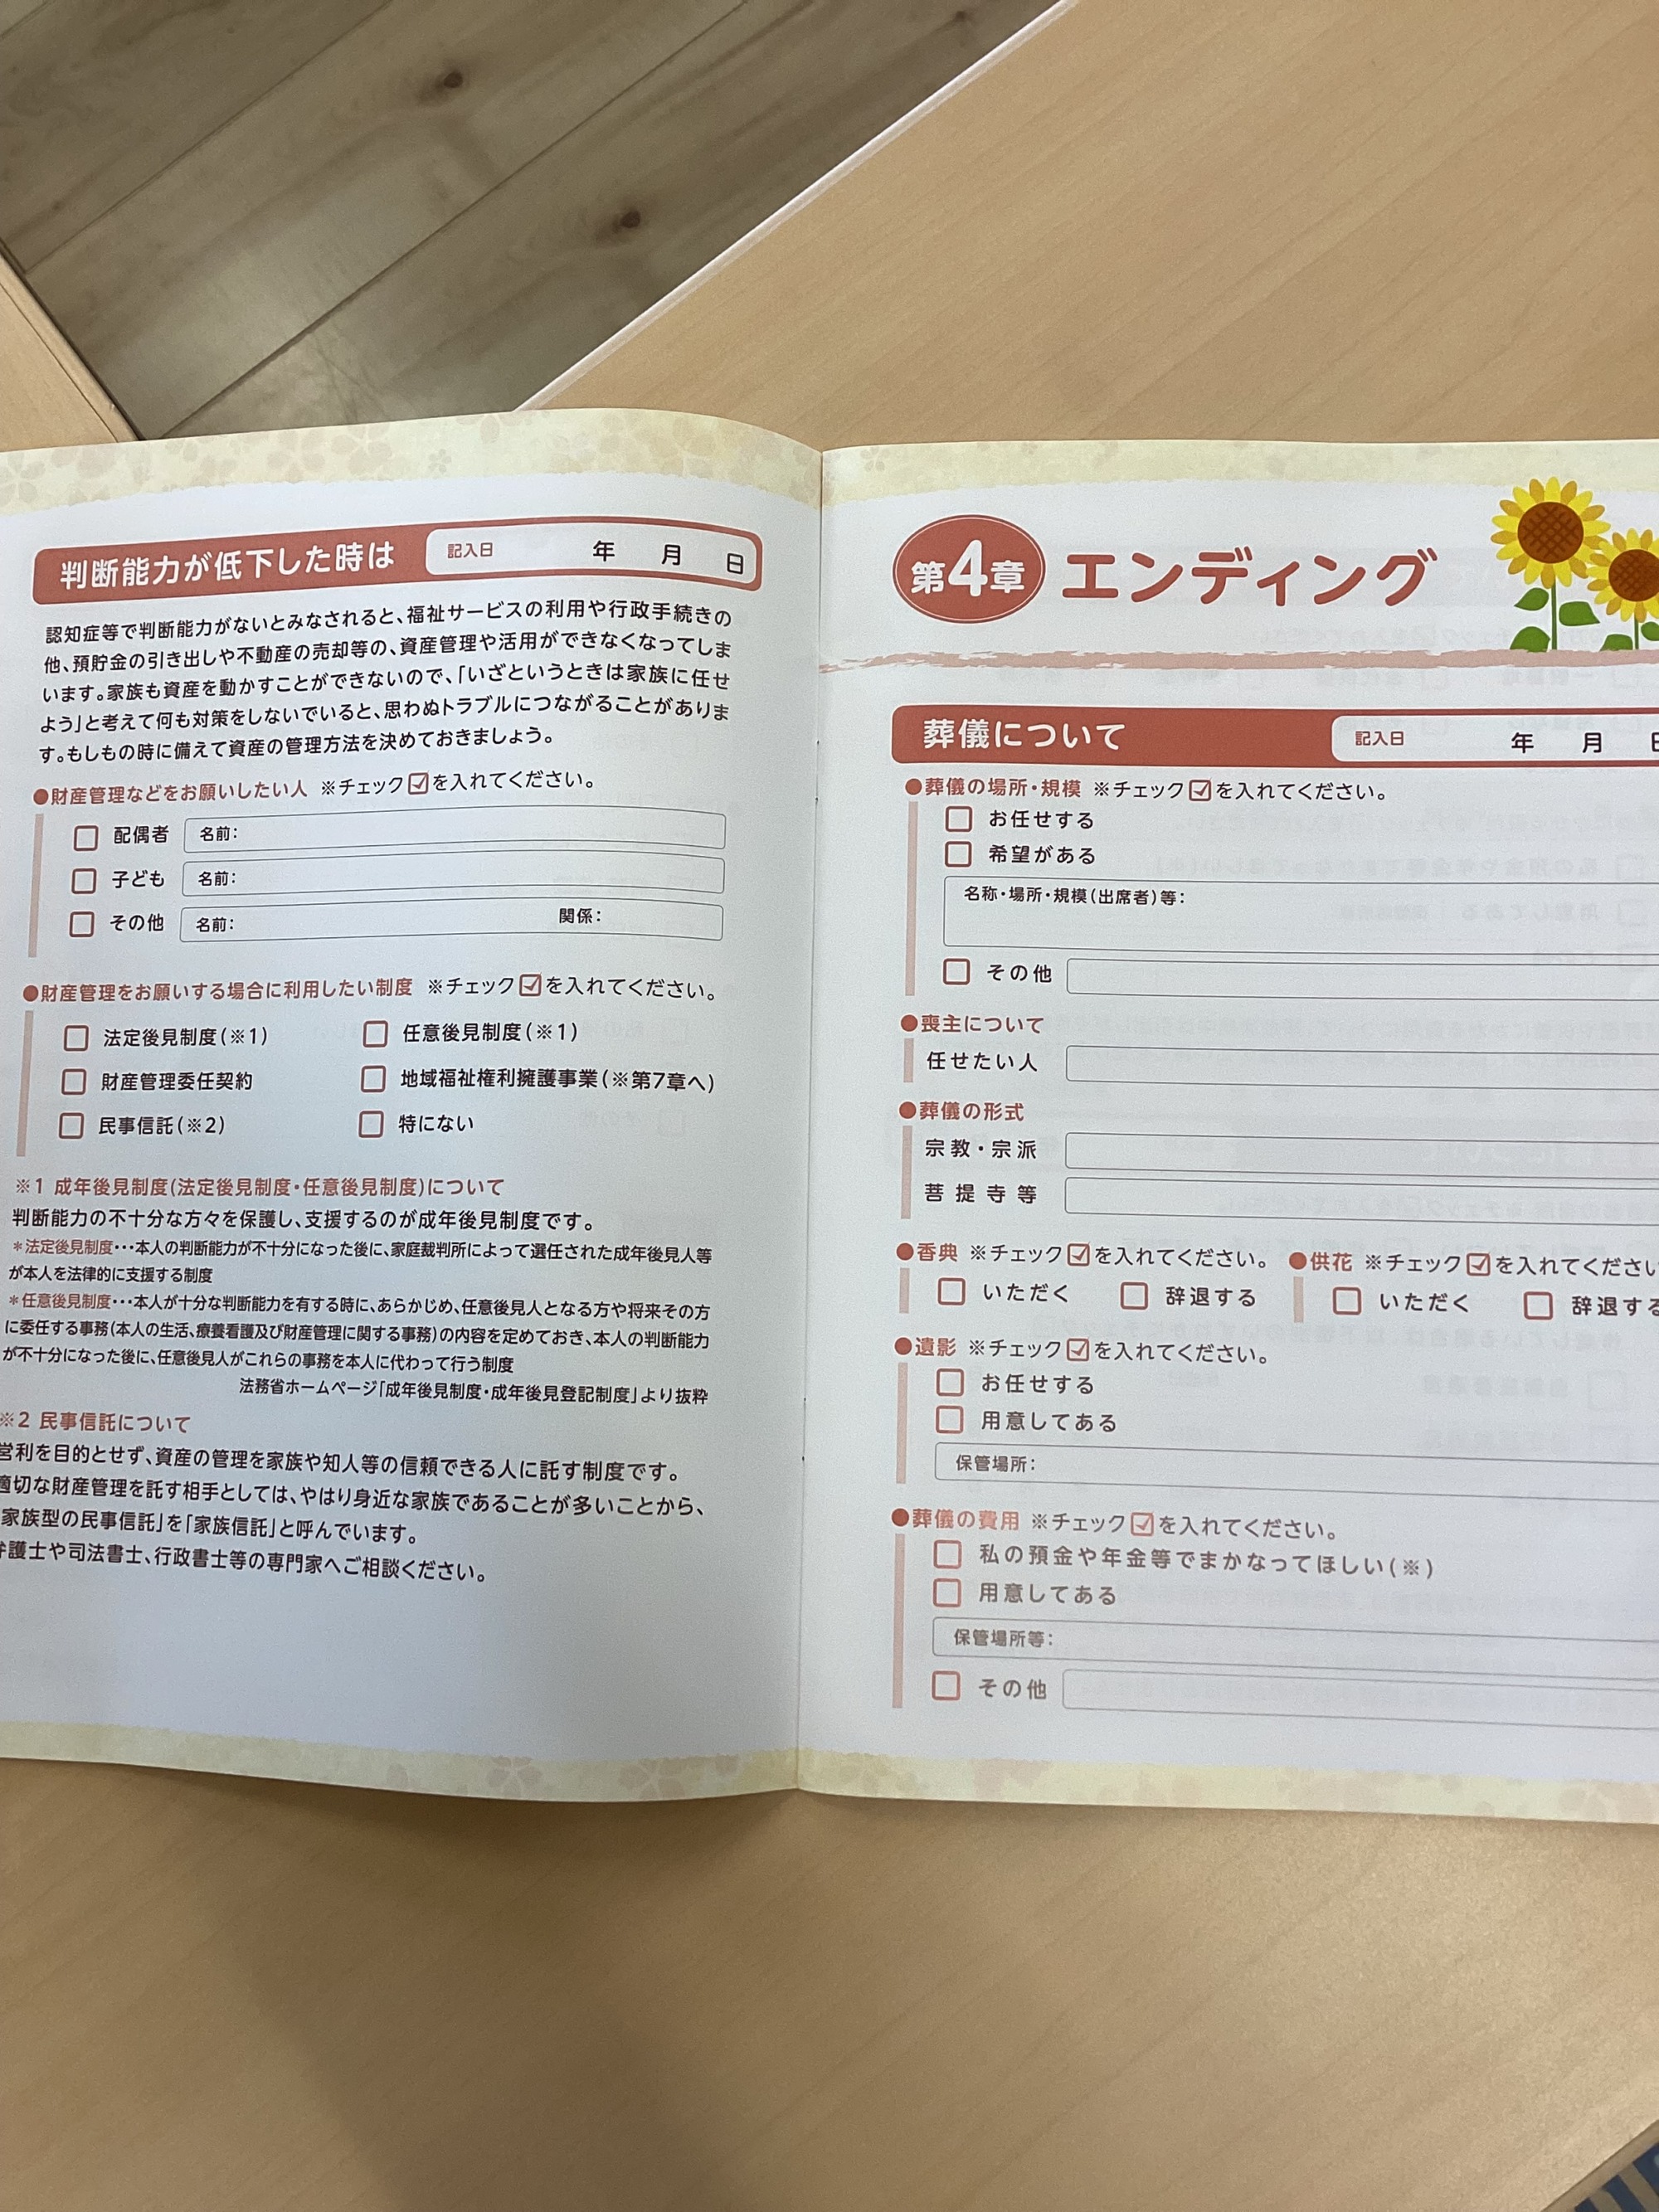 判断能力が低下した時は
記入日 年 月 日
認知症等で判断能力がないとみなされると、福祉サービスの利用や行政手続きの
他、預貯金の引き出しや不動産の売却等の、資産管理や活用ができなくなってしま
います。家族も資産を動かすことができないので、「いざというときは家族に任せ
よう」と考えて何も対策をしないでいると、思わぬトラブルにつながることがありま
す。もしもの時に備えて資産の管理方法を決めておきましょう。
●財産管理などをお願いしたい人 ※チェック☑を入れてください。
□ 配偶者 名前:
□ 子ども 名前:
□ その他 名前: 関係:
●財産管理をお願いする場合に利用したい制度 ※チェック☑を入れてください。
□ 法定後見制度(※1) □ 任意後見制度(※1)
□ 財産管理委任契約 □ 地域福祉権利擁護事業(※第7章へ)
□ 民事信託(※2) □ 特にない
※1 成年後見制度(法定後見制度・任意後見制度)について
判断能力の不十分な方々を保護し、支援するのが成年後見制度です。
*法定後見制度・・・本人の判断能力が不十分になった後に、家庭裁判所によって選任された成年後見人等
が本人を法律的に支援する制度
*任意後見制度・・・本人が十分な判断能力を有する時に、あらかじめ、任意後見人となる方や将来その方
に委任する事務(本人の生活、療養看護及び財産管理に関する事務)の内容を定めておき、本人の判断能力
が不十分になった後に、任意後見人がこれらの事務を本人に代わって行う制度
法務省ホームページ「成年後見制度・成年後見登記制度」より抜粋
※2 民事信託について
営利を目的とせず、資産の管理を家族や知人等の信頼できる人に託す制度です。
適切な財産管理を託す相手としては、やはり身近な家族であることが多いことから、
家族型の民事信託」を「家族信託」と呼んでいます。
弁護士や司法書士、行政書士等の専門家へご相談ください。
第4章 エンディング
葬儀について
記入日 年 月 日
●葬儀の場所・規模 ※チェック☑を入れてください。
□ お任せする
□ 希望がある
名称・場所・規模(出席者)等:
□ その他
●喪主について
任せたい人
●葬儀の形式
宗教・宗派
菩提寺等
●香典 ※チェック☑を入れてください。 ●供花 ※チェック☑を入れてください
□ いただく □ 辞退する □ いただく □ 辞退する
●遺影 ※チェック☑を入れてください。
□ お任せする
□ 用意してある
保管場所:
●葬儀の費用 ※チェック☑を入れてください。
□ 私の預金や年金等でまかなってほしい(※)
□ 用意してある
保管場所等:
□ その他